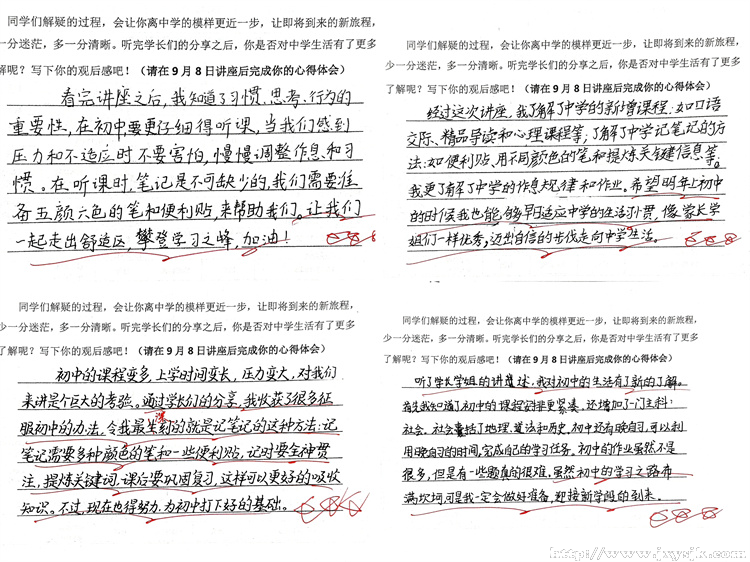 同学们解疑的过程，会让你离中学的模样更近一步，让即将到来的新旅程，
一分迷茫，多一分清晰。听完学长们的分享之后，你是否对中学生活有了更多
解呢？写下你的观后感吧！（请在9月8日讲座后完成你的心得体会）
看完讲座之后，我知道了习惯、思考、行为的
重要性，在初中要更仔细得听课，当我们感到
压力和不适应时不要害怕，慢慢调整作息和习
惯。在听课时，笔记是不可缺少的，我们需要准
备五颜六色的笔和便利贴，来帮助我们。让我们
一起走出舒适区，攀登学习之峰，加油！
同学们解疑的过程，会让你离中学的模样更近一步，让即将到来的新旅程，
少一分迷茫，多一分清晰。听完学长们的分享之后，你是否对中学生活有了更多
了解呢？写下你的观后感吧！（请在9月8日讲座后完成你的心得体会）
经过这次讲座，我了解了中学的新增课程，如口语
交际、精品导读和心理课程等，了解了中学记笔记的方
法：如便利贴、用不同颜色的笔和提炼关键信息等。
我更了解了中学的作息规律和作业。希望明年上初中
的时候我也能够早日适应中学的生活习惯，像学长学
姐们一样优秀，迈出自信的步伐走向中学生活。
同学们解疑的过程，会让你离中学的模样更近一步，让即将到来的新旅程，
少一分迷茫，多一分清晰。听完学长们的分享之后，你是否对中学生活有了更多
了解呢？写下你的观后感吧！（请在9月8日讲座后完成你的心得体会）
初中的课程变多，上学时间变长，压力变大，对我们
来讲是个巨大的考验。通过学长们的分享，我收获了很多征
服初中的办法，令我最深刻的就是记笔记的这种方法：记
笔记需要多种颜色的笔和一些便利贴，记时要全神贯
注，提炼关键词，课后要巩固复习，这样可以更好的吸收
知识。不过，现在也得努力，为初中打下好的基础。
同学们解疑的过程，会让你离中学的模样更近一步，让即将到来的新旅程，
少一分迷茫，多一分清晰。听完学长们的分享之后，你是否对中学生活有了更多
了解呢？写下你的观后感吧！（请在9月8日讲座后完成你的心得体会）
听了学长学姐的讲述，我对初中的生活有了新的了解。
首先我知道了初中的课程到非更紧凑，还增加了一门主科：
社会，社会囊括了地理、道法和历史，初中还有晚自习，可以利
用晚自习的时间，完成自己的学习任务，初中的作业虽然不是
很多，但是有一些题真的很难，虽然初中的学习之路布
满坎坷，可是我一定会做好准备，迎接新学段的到来。
http://www.jxysjk.com